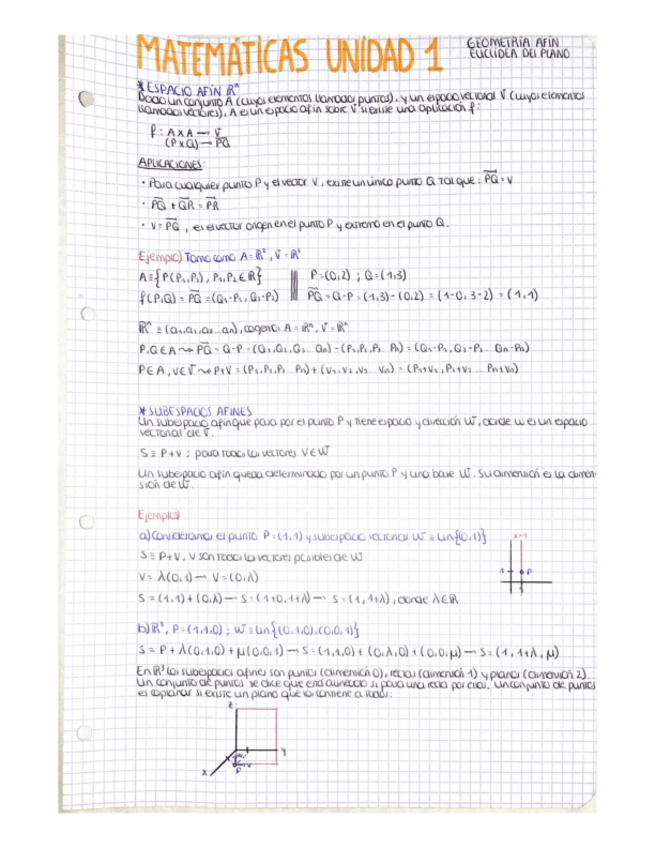 MATEMÁTICAS UNIDAD 1
GEOMETRÍA AFÍN
EUCLÍDEA DEL PLANO
* ESPACIO AFÍN ℝⁿ
Dado un conjunto A (cuyos elementos llamados puntos), y un espacio vectorial V (cuyos elementos
llamados vectores), A es un espacio afín sobre V si existe una aplicación f:
f: A×A → V
(P×Q) → PQ
APLICACIONES:
· Para cualquier punto P y el vector V, existe un único punto Q tal que: PQ = V
· PQ + QR = PR
· V = PQ, es el vector origen en el punto P y extremo en el punto Q.
Ejemplo) Tomo como A = ℝ², V = ℝ²
A = {P(P₁,P₂), P₁,P₂ ∈ ℝ} P = (0,2) ; Q = (1,3)
f(P,Q) = PQ = (Q₁-P₁, Q₂-P₂) PQ = Q-P = (1,3) - (0,2) = (1-0, 3-2) = (1,1)
ℝⁿ = (a₁,a₂,a₃... an), cogemos A = ℝⁿ, V = ℝⁿ
P,Q ∈ A ⇝ PQ = Q-P = (Q₁,Q₂,Q₃... Qn) - (P₁,P₂,P₃... Pn) = (Q₁-P₁, Q₂-P₂... Qn-Pn)
P ∈ A, V ∈ V ⇝ P+V = (P₁,P₂,P₃... Pn) + (V₁,V₂,V₃... Vn) = (P₁+V₁, P₂+V₂... Pn+Vn)
* SUBESPACIOS AFINES
Un subespacio afín que pasa por el punto P y tiene espacio y dirección W, donde W es un espacio
vectorial de V.
S ≡ P+V ; para todos los vectores V ∈ W
Un subespacio afín queda determinado por un punto P y una base W. Su dimensión es la dimen-
sión de W.
Ejemplos
a) Consideramos el punto P = (1,1) y subespacio vectorial W = Lin{(0,1)}
S ≡ P+V, V son todos los vectores posibles de W
V = λ(0,1) → V = (0,λ)
S = (1,1) + (0,λ) → S = (1+0, 1+λ) → S = (1, 1+λ), donde λ ∈ ℝ
x=1
1
P
1
b) ℝ³, P = (1,1,0) ; W = Lin{(0,1,0),(0,0,1)}
S = P + λ(0,1,0) + μ(0,0,1) → S = (1,1,0) + (0,λ,0) + (0,0,μ) → S = (1, 1+λ, μ)
En ℝ³ los subespacios afines son puntos (dimensión 0), rectas (dimensión 1) y planos (dimensión 2).
Un conjunto de puntos se dice que está alineado si pasa una recta por ellos. Un conjunto de puntos
es coplanar si existe un plano que los contiene a todos.
Z
Y
X
P